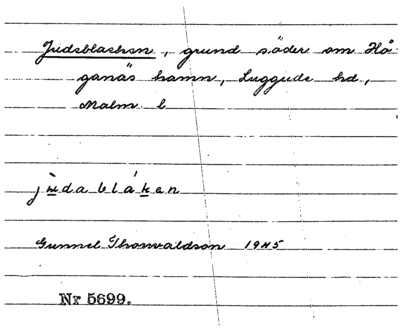 Judablacken, grund söder om Hö-
ganäs hamn, Luggude hd,
Malm. l
jùdablákan
Gunnel Thorwaldson 1945
Nr 5699.